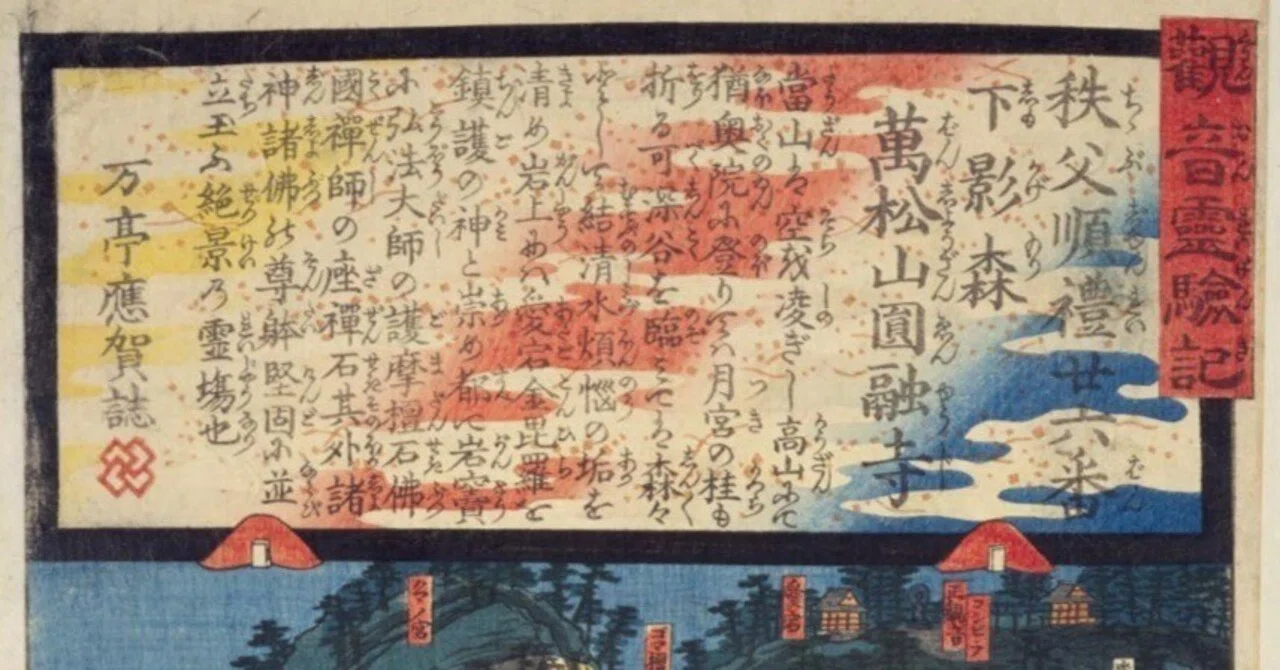 觀音靈驗記
秩父順禮廿六番
下影森
萬松山圓融寺
當山は空を凌ぎし高山にて
猶奥院に登りては月宮の桂も
折る可深谷を臨こては森々
として結清水煩悩の垢を
清め岩上には愛宕金毘羅を
鎮護の神と崇め都て岩窟
に弘法大師の護摩檀石佛
國禪師の座禪石其外諸
神諸佛の尊躰堅固に並
立玉ふ絶景の霊場也
万亭應賀誌
クマノ宮
愛宕
コンピラ